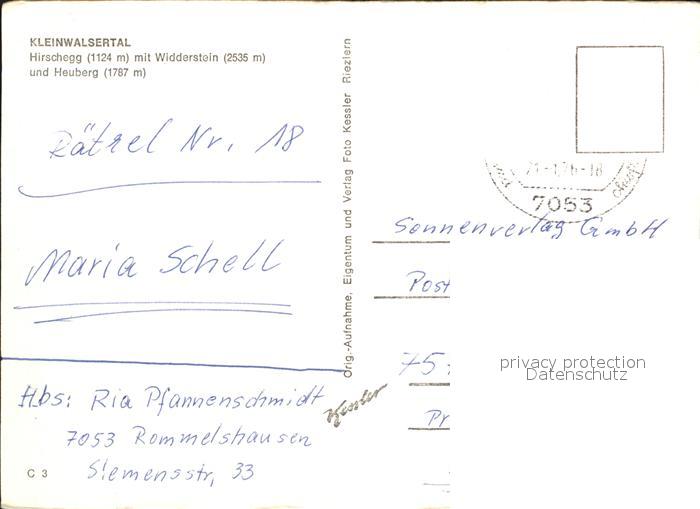 KLEINWALSERTAL
Hirschegg (1124 m) mit Widderstein (2535 m)
und Heuberg (1787 m)
Rätsel Nr. 18
Maria Schell
Abs: Ria Pfannenschmidt
7053 Rommelshausen
Siemensstr, 33
C 3
Orig.-Aufnahme, Eigentum und Verlag Foto Kessler Riezlern
Kessler
7053
Sonnenverlag GmbH
Post
75
Pr
privacy protection
Datenschutz